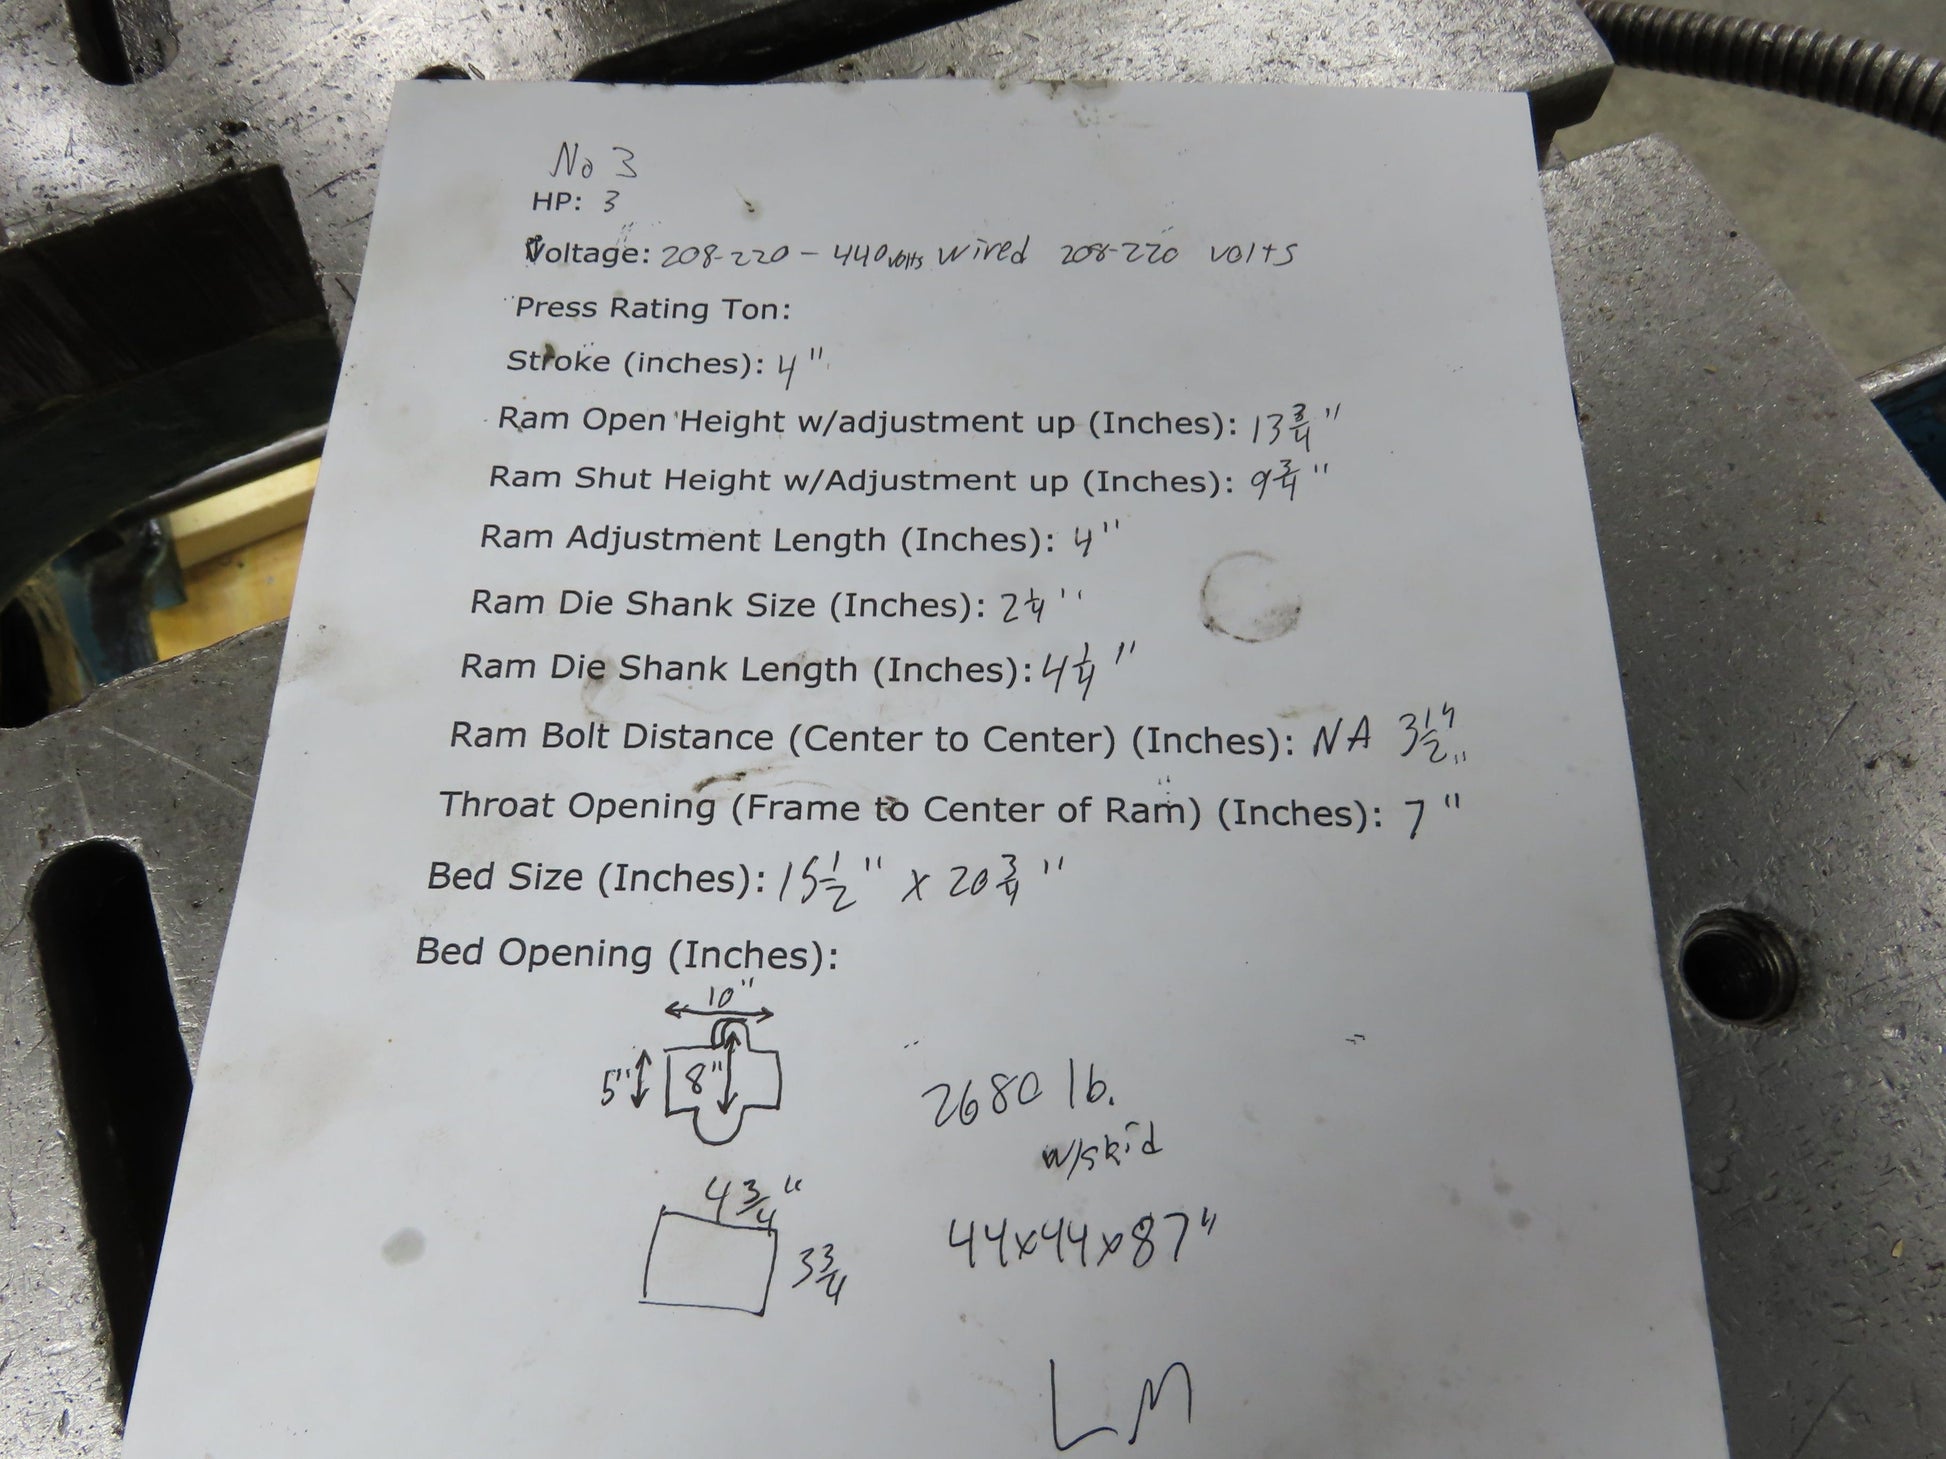 No 3
HP: 3
Voltage: 208-220 - 440 volts wired 208-220 volts
Press Rating Ton:
Stroke (inches): 4"
Ram Open Height w/adjustment up (Inches): 13 3/4"
Ram Shut Height w/Adjustment up (Inches): 9 3/4"
Ram Adjustment Length (Inches): 4"
Ram Die Shank Size (Inches): 2 1/4"
Ram Die Shank Length (Inches): 4 1/4"
Ram Bolt Distance (Center to Center) (Inches): NA 3 1/2"
Throat Opening (Frame to Center of Ram) (Inches): 7"
Bed Size (Inches): 15 1/2" x 20 3/4"
Bed Opening (Inches):
10"
5" 8"
2680 lb.
w/skid
4 3/4"
3 3/4
44x44x87"
LM